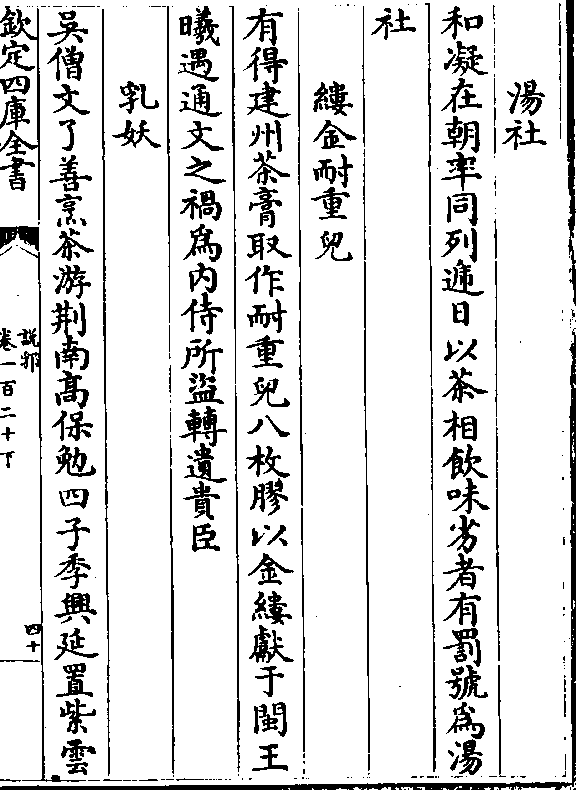 湯社
和凝在朝率同列遞日以茶相飲味劣者有罰號為湯
社
縷金耐重兒
有得建州茶膏取作耐重兒八枚膠以金縷獻于閩王
曦遇通文之禍為内侍所盜轉遺貴臣
乳妖
吳僧文了善烹茶游荆南高保勉四子季興延置紫雲
欽定四庫全書
說郛
卷一百二十下
四十